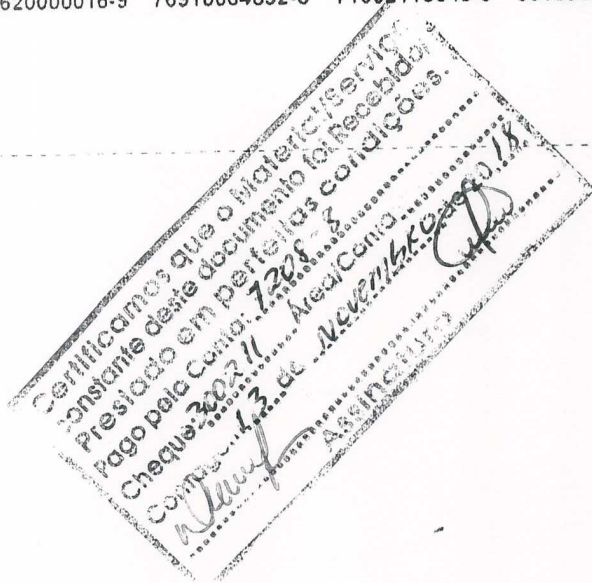 620000016-9
Certificamos que o Material/serviço
constante deste documento foi Recebido/
Prestado em perfeitas condições.
Pago pela Conta: 7208-8
Cheque 300211 Area/Conta
13 de Novembro de 2018.
Assinatura